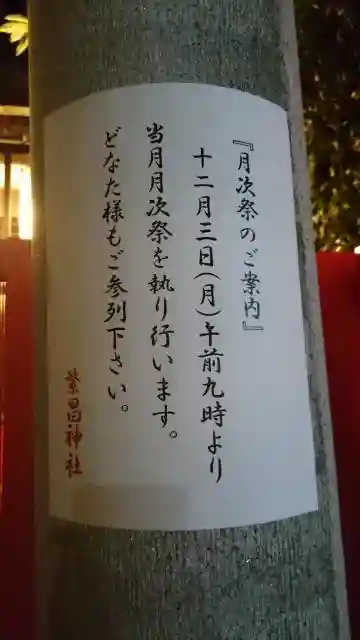 『月次祭のご案内』
十二月三日(月)午前九時より
当月月次祭を執り行います。
どなた様もご参列下さい。
繁昌神社